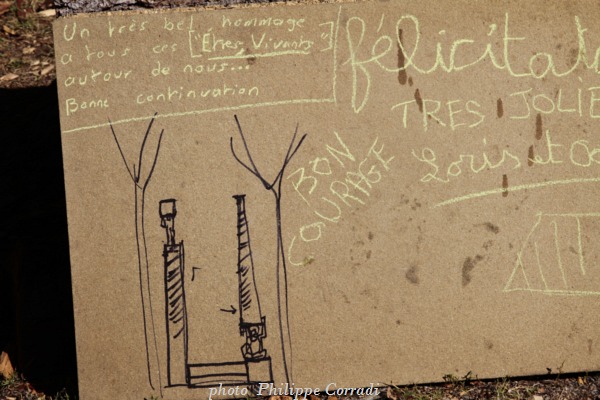 Un très bel hommage
a tous ces ["Êtres Vivants"]
autour de nous...
Bonne continuation
félicitat
TRES JOLIE
BON
COURAGE
Loris et
photo Philippe Corradi